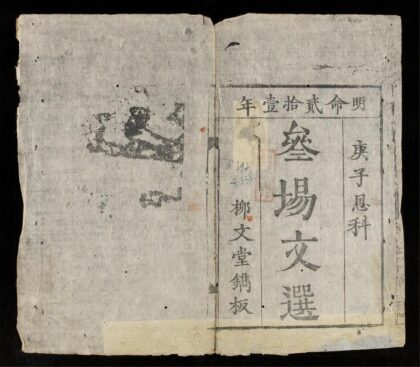 明命貳拾壹年
庚子恩科
叄場文選
柳文堂鐫板